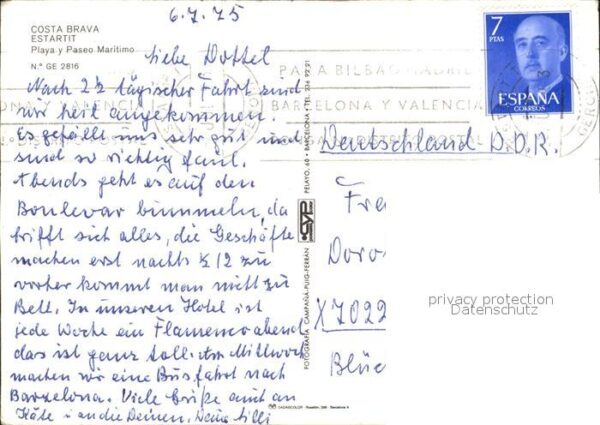 6.7.75
COSTA BRAVA
ESTARTIT
Playa y Paseo Marítimo
N.º GE 2816
liebe Dottel
Nach 2½ tägischer Fahrt sind
wir heil angekommen.
Es gefällt uns sehr gut und
sind so richtig faul.
Abends geht es auf den
Boulevar bummeln, da
trifft sich alles, die Geschäfte
machen erst nachts ½12 zu
vorher kommt man nicht zu
Bett. In unseren Hotel ist
jede Woche ein Flamencoabend
das ist ganz toll. Am Mittwoch
machen wir eine Busfahrt nach
Barzelona. Viele Grüße auch an
Käte u. an die Deinen, Deine Lilli
PARA BILBAO MADRID
BARCELONA Y VALENCIA
NA Y VALENCIA
7
PTAS
ESPAÑA
CORREOS
PELAYO, 60 • BARCELONA • TEL. 236 92 21
CYP
FOTOGRAFIA CAMPAÑA-PUIG-FERRÁN
Deutschland D.D.R.
Fra
Doro
X7022
Blüc
privacy protection
Datenschutz